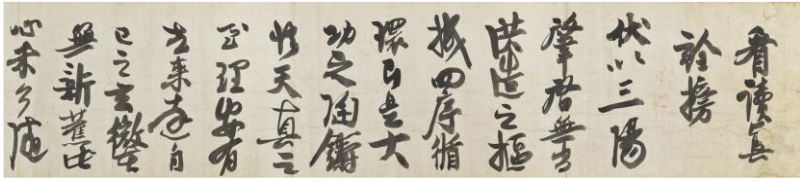 看讀真
詮榜
伏以三陽
肇啓無
洪造之樞
機四序循
環即是大
功之陶鑄
悟天真之
至理安有
去來達自
己之玄
無新舊
心未了隨